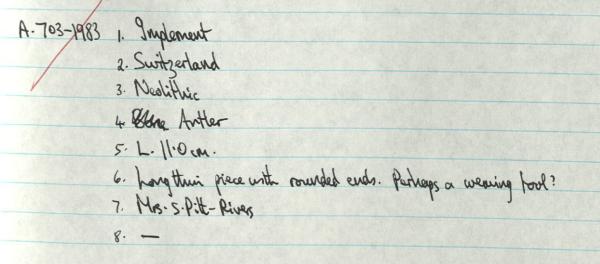 A. 703-1983 1. Implement
2. Switzerland
3. Neolithic
4. Bone Antler
5. L. 11.0 cm.
6. Long thin piece with rounded ends. Perhaps a weaving tool?
7. Mrs. S. Pitt-Rivers
8. —